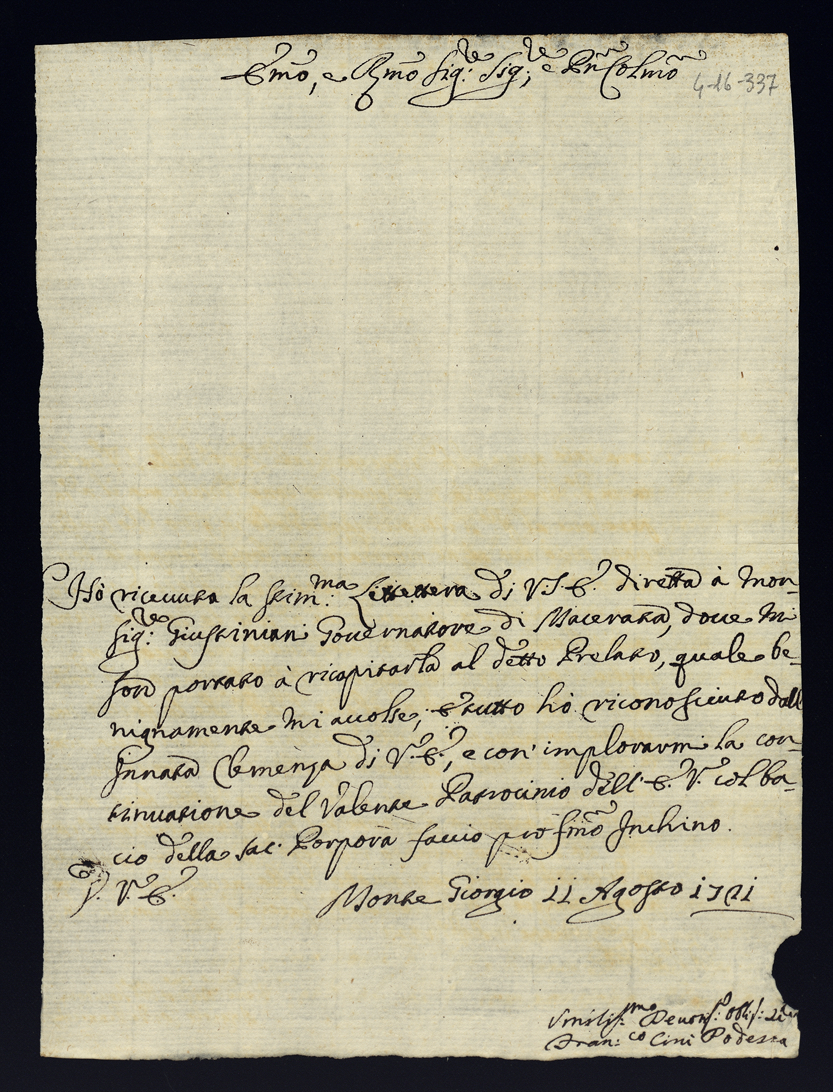 Emo, e Rmo Sig:re Sig:re e Pñ Colmo
4-16-337
Hò riceuuta la stim:ma Lettera di V.S.E. diretta à Mon-
sig:re Giustiniani Gouernatore di Macerata, doue mi
son portato à ricapitarla al detto Prelato, quale be-
nignamente mi accolse, e tutto hò riconosciuto dall
Innata Clemenza di V.E., e con' implorarmi la con-
tinuatione del Valente Patrocinio dell' E.V. col ba-
cio della Sac: Porpora faccio profmo Inchino.
V.E.
Monte Giorgio 11 Agosto 1721
Vmilis:mo Deuotis:o Oblis:
Fran:co Cini Podestà